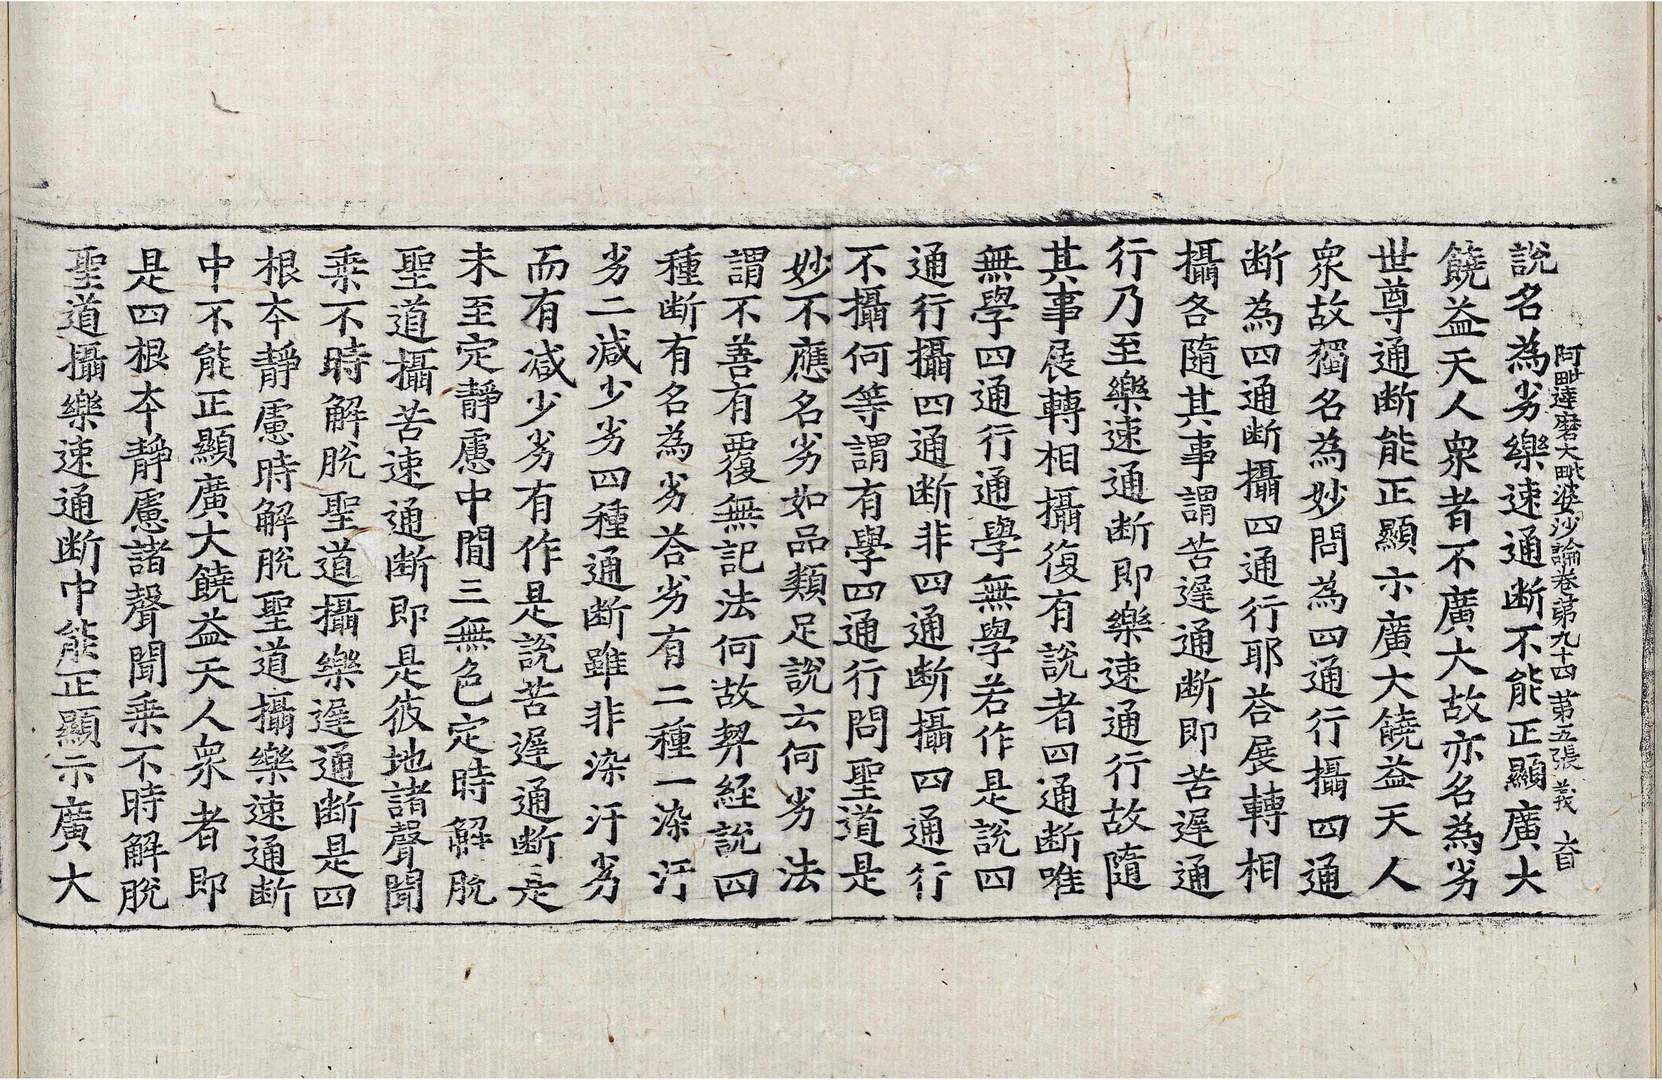 阿毗達磨大毗婆沙論卷第九十四 苐五張 義
說名為劣樂速通断不能正顯廣大
饒益天人衆者不廣大故亦名為劣
世尊通断能正顯示廣大饒益天人
衆故獨名為妙問為四通行攝四通
断為四通断攝四通行耶荅展轉相
攝各隨其事謂苦遲通断即苦遲通
行乃至樂速通断即樂速通行故隨
其事展轉相攝復有說者四通断唯
無學四通行通學無學若作是說四
通行攝四通断非四通断攝四通行
不攝何等謂有學四通行問聖道是
妙不應名劣如品類足說云何劣法
謂不善有覆無記法何故契経說四
種断有名為劣荅劣有二種一染汙
劣二減少劣四種通断雖非染汙劣
而有减少劣有作是說苦遲通断是
未至定靜慮中閒三無色定時解脫
聖道攝苦速通断即是彼地諸聲聞
乗不時解脫聖道攝樂遲通断是四
根夲靜慮時解脫聖道攝樂速通断
中不能正顯廣大饒益天人衆者即
是四根夲靜慮諸聲聞乗不時解脫
聖道攝樂速通断中能正顯示廣大